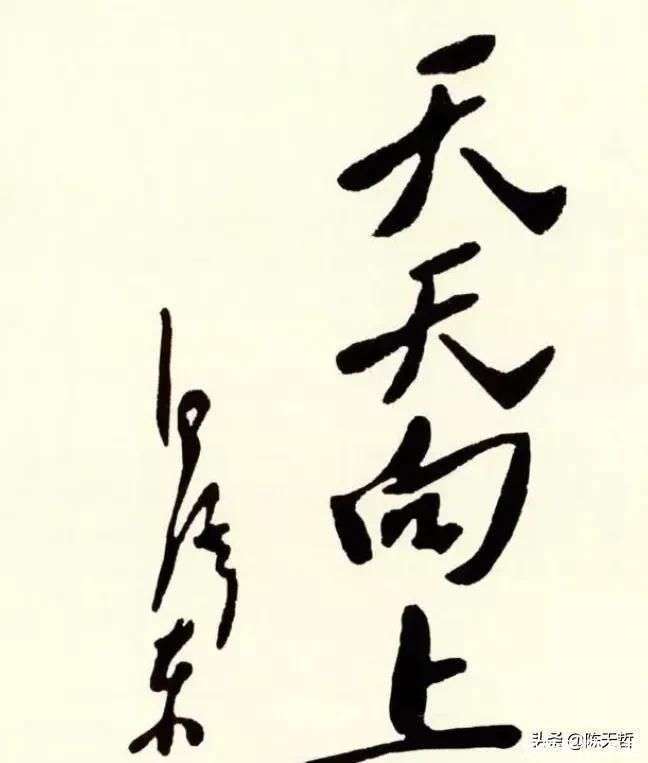 天天向上
毛泽东
头条 @陈天哲